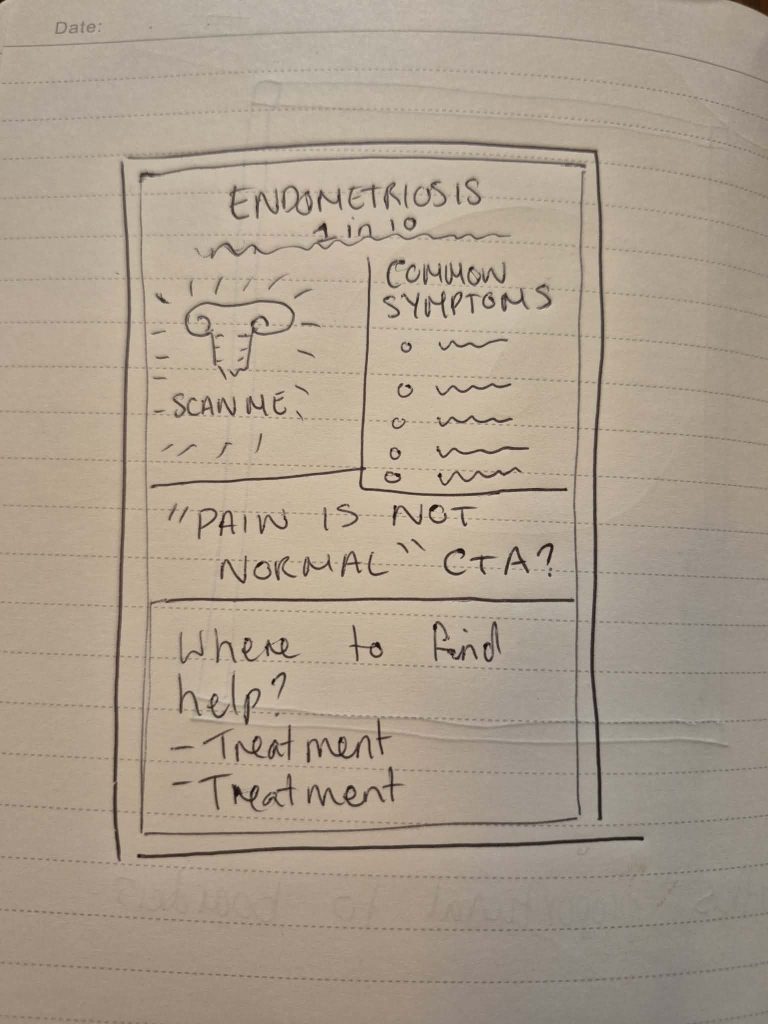 Date:
ENDOMETRIOSIS
1 in 10
SCAN ME
COMMON
SYMPTOMS
"PAIN IS NOT
NORMAL" CTA?
Where to find
help?
- Treatment
- Treatment